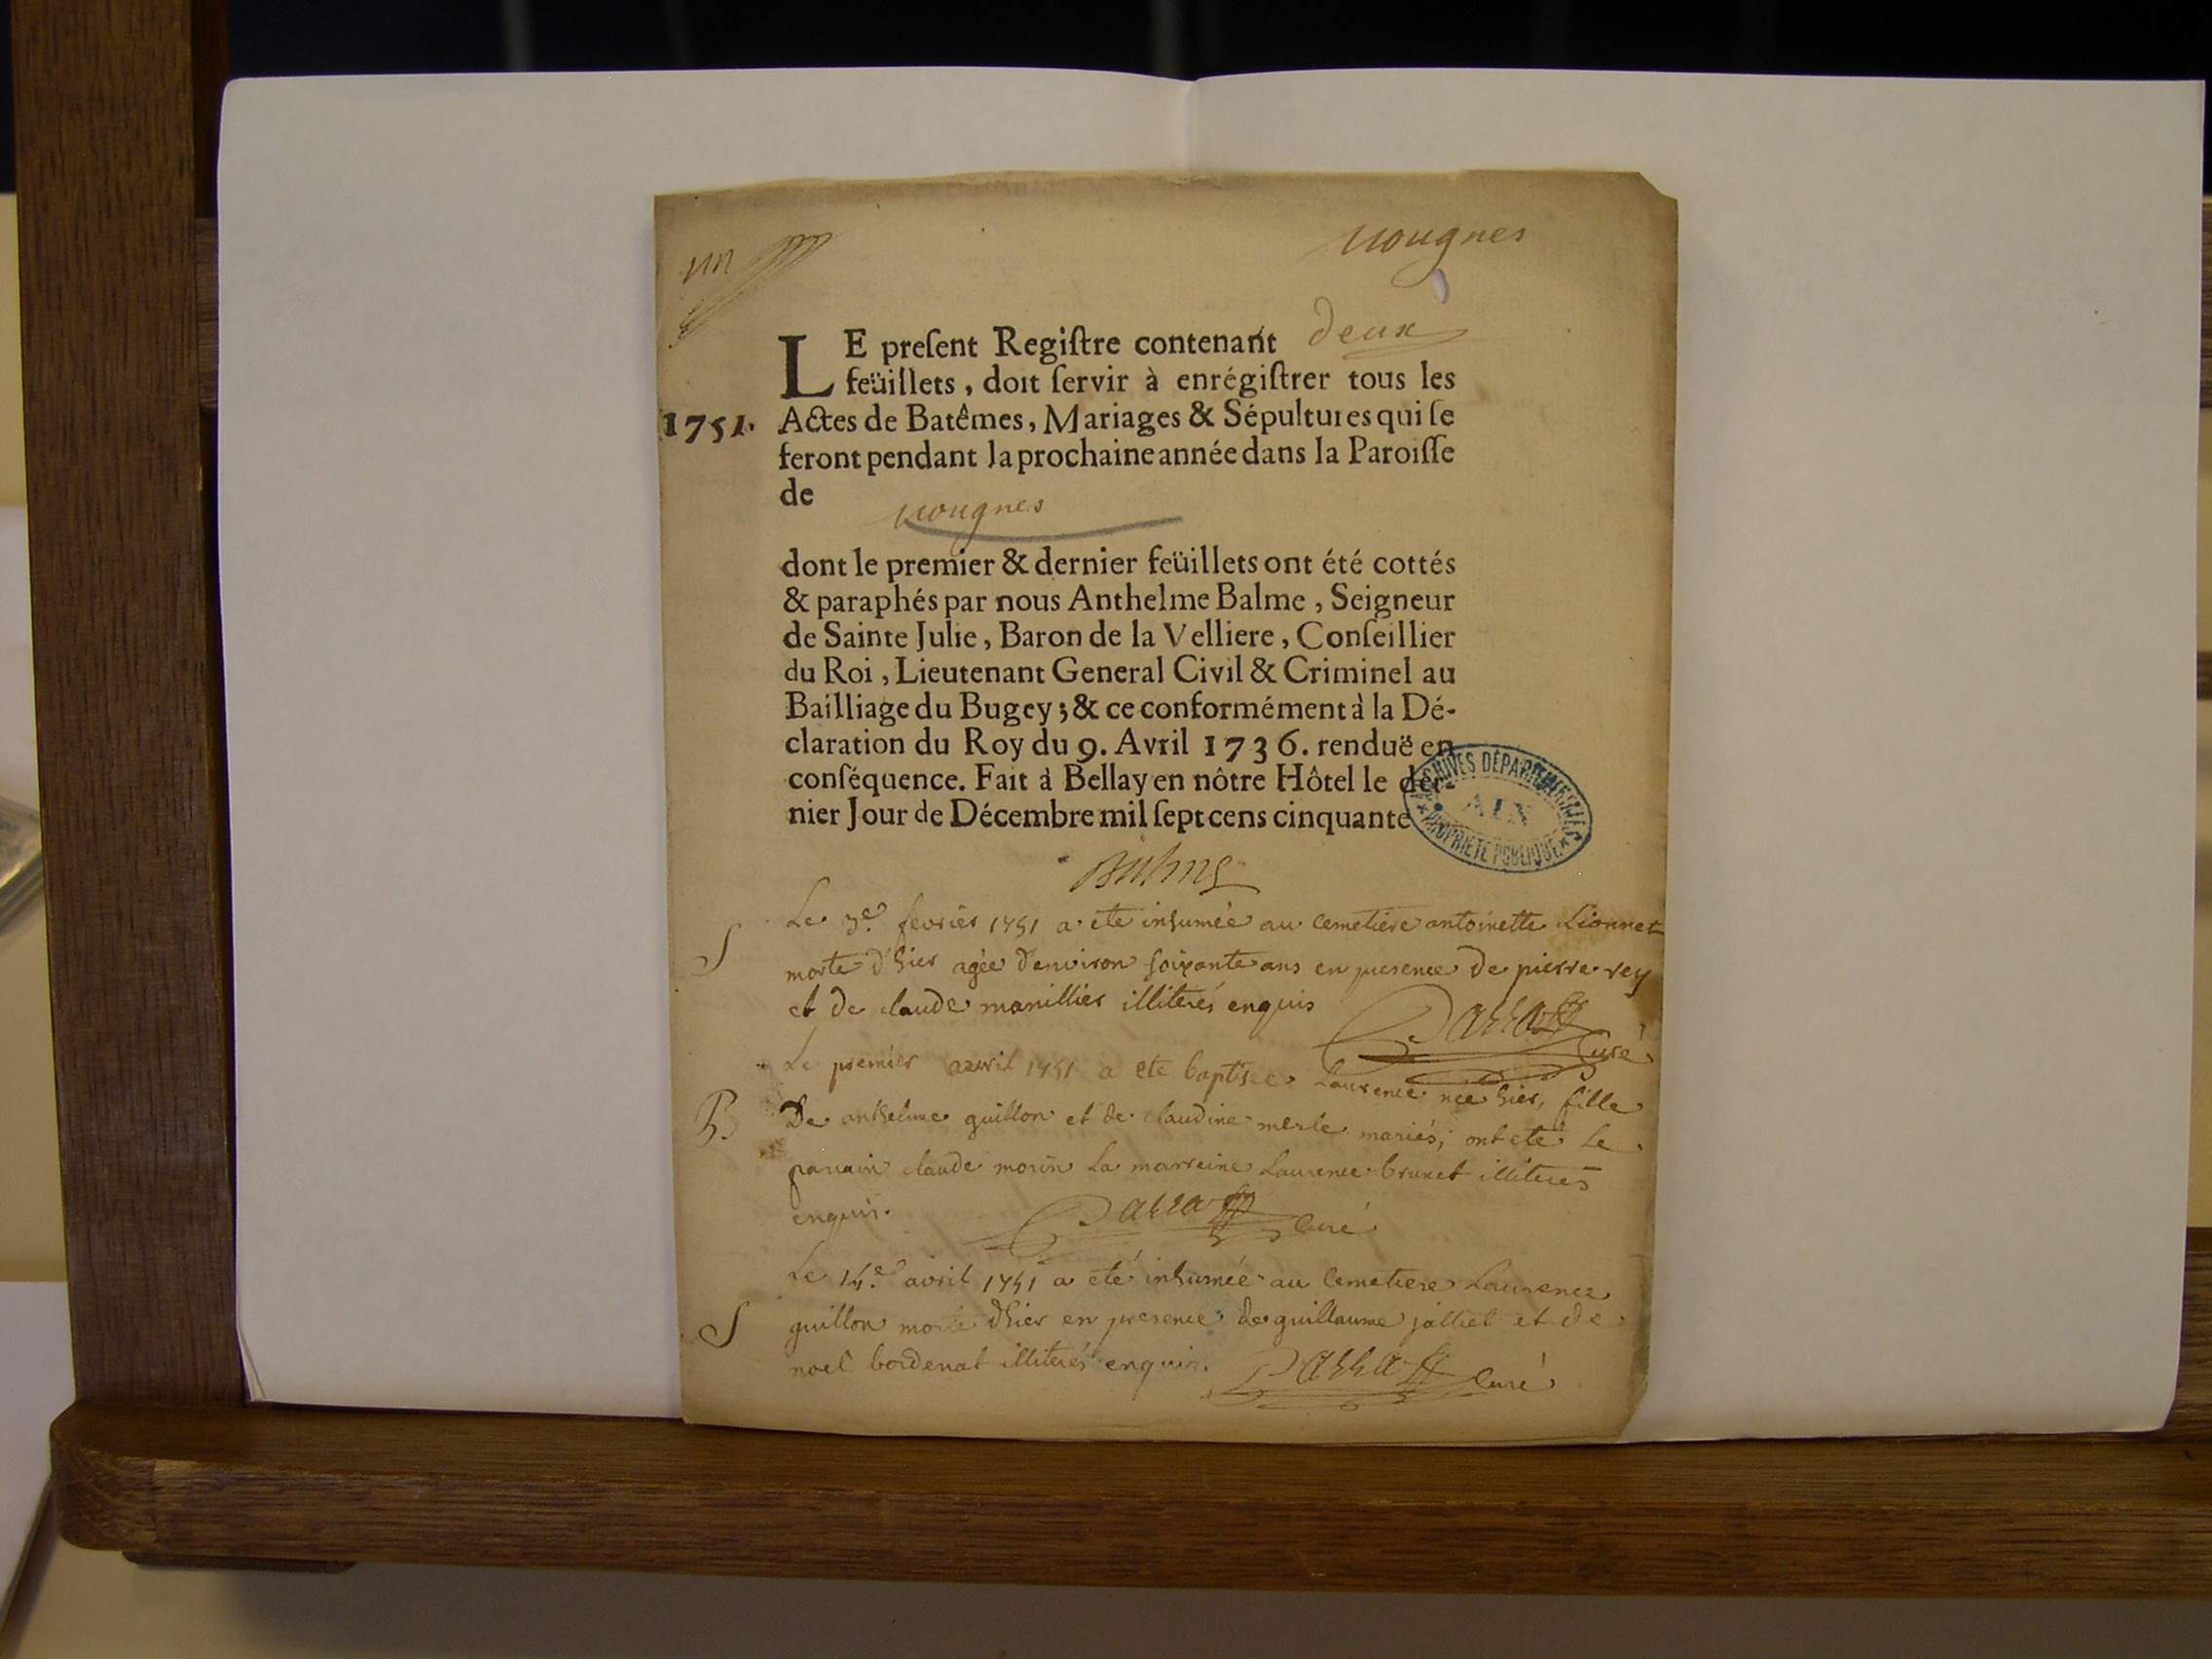 un
vougnes
LE preſent Regiſtre contenant deux
feüillets, doit ſervir à enrégiſtrer tous les
1751. Actes de Batêmes, Mariages & Sépultures qui ſe
feront pendant la prochaine année dans la Paroiſſe
de
vougnes
dont le premier & dernier feüillets ont été cottés
& paraphés par nous Anthelme Balme, Seigneur
de Sainte Julie, Baron de la Velliere, Conſeillier
du Roi, Lieutenant General Civil & Criminel au
Bailliage du Bugey; & ce conformément à la Dé-
claration du Roy du 9. Avril 1736. renduë en
conſéquence. Fait à Bellay en nôtre Hôtel le der-
nier Jour de Décembre mil ſept cens cinquante
ARCHIVES DÉPARTEMENTALES
AIN
PROPRIÉTÉ PUBLIQUE
Balme
Le 3e. fevrier 1751 a ete inhumée au cemetiere antoinette Lionnet
S morte d'hier agée d'environ soixante ans en presence de pierre rey
et de claude manillier illiterés enquis
Curé
Le premier avril 1751 a ete baptisee Laurence née hier, fille
B. De anthelme guillon et de claudine merle mariés; ont eté Le
parrain claude morin La marreine Laurence brunet illiterés
enquis.
Curé
Le 14e. avril 1751 a eté inhumée au Cemetiere Laurence
S guillon morte d'hier en presence de guillaume jalliet et de
noel bordenat illiterés enquis.
Curé